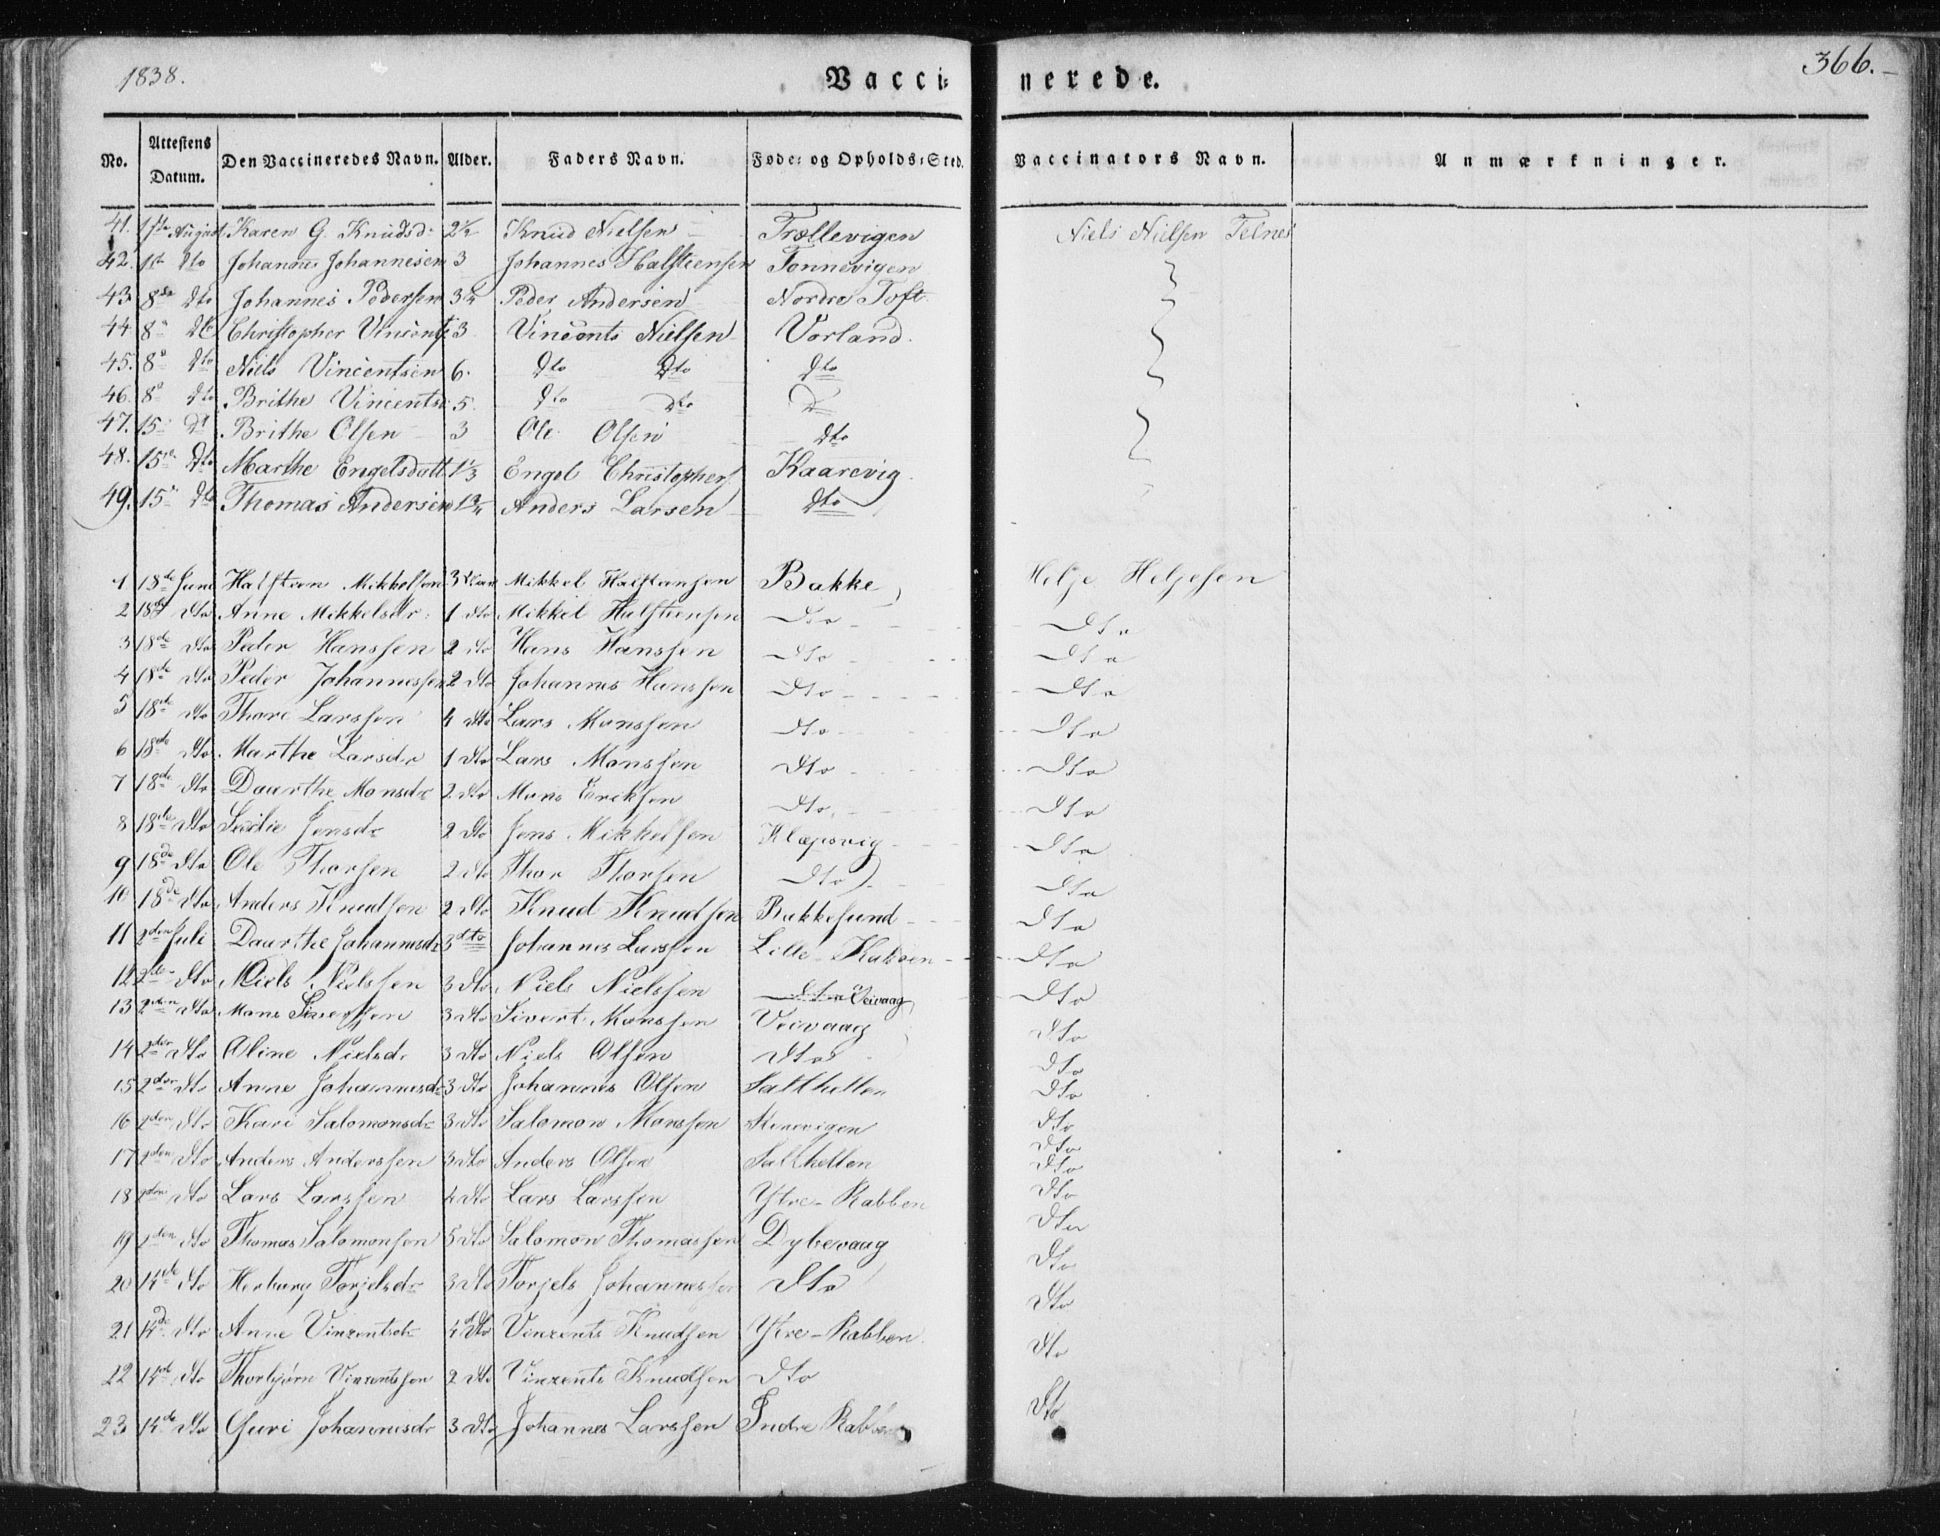 1838.
Vacci=nerede.
366.
No. Attestens Datum. Den Vaccineredes Navn. Alder. Faders Navn. Føde= og Opholds=Sted. Vaccinators Navn. Anmærkninger.
41. 1ste August Karen G. Knudsd: 2½ Knud Nielsen Trællevigen Niels Nielsen Telnes
42. 1ste Dto Johannes Johannesen 3 Johannes Halsteensen Tonnevigen
43. 8de Dto Johannes Pedersen Peder Andersen Nordre Toft
44. 8 Dto Christopher Vincents. 3. Vincents Nielsen Vorland.
45. 8 Dto Niels Vincentsen 6. Dto Dto Dto
46. 8 Dto Brithe Vincents 5. Dto Dto D
47. 15 Dt Brithe Olsen 3 Ole Olsen Dto
48. 15 Dto Marthe Engelsdatt 1⅓ Engel Christophers. Kaarevig.
49. 15 Dto Thomas Andersen 1¾ Anders Larsen Dto
1 18de Juni Halsteen Mikkelsen 3 Mikkel Halsteensen Bakke Helje Heljesen
2 18de Dto Anne Mikkelsdr: 1 Dto Mikkel Halsteensen Dto Dto
3 18de Dto Peder Hanssen 2 Dto Hans Hanssen Dto Dto
4 18de Dto Peder Johannessen 2 Dto Johannes Hanssen Dto Dto
5 18de Dto Thore Larssen 4 Dto Lars Monssen Dto Dto
6 18de Dto Marthe Larsdr 1 Dto Lars Monssen Dto Dto
7 18de Dto Daarthe Monsdr 2 Dto Mons Eriksen Dto Dto
8 18de Dto Jensdr 2 Dto Jens Mikkelsen Klæpsvig Dto
9 18de Dto Ole Thorsen 2 Dto Thor Thorsen Dto Dto
10 18de Dto Anders Knudsen 2 Dto Knud Knudsen Bakkesund Dto
11 2den Juli Daarthe Johannesdr 3 dto Johannes Larssen Lille-Rabben Dto
12 2den Dto Niels Nielssen 3 Dto Niels Nielssen Dto Veivaag Dto
13 2den Dto Mons Siverssen 3 Dto Sivert Monssen Veivaag Dto
14 2den Dto Oline Nielsd. 3 Dto Niels Olsen Dto Dto
15 2den Dto Anne Johannesdr 3 Dto Johannes Olsen Salthellen Dto
16 2den Dto Kari Salomonsdr 3 Dto Salomon Monssen Dto
17 2den Dto Anders Anderssen 3 Dto Anders Olsen Salthellen Dto
18 2den Dto Lars Larssen 4 Dto Lars Larssen Ytre-Rabben Dto
19 2den Dto Thomas Salomonsen 5 Dto Salomon Thomassen Dybevaag Dto
20 14de Dto Herborg Torjelsdr 3 Dto Torjels Johannessen Dto Dto
21 14de Dto Anne Vinzentsdr 4 Dto Vinzents Knudsen Ytre-Rabben. Dto
22 14de Dto Thorbjørn Vinzentssen 2 Dto Vinzents Knudsen Dto Dto
23 14de Dto Guri Johannesdr 3 Dto Johannes Larssen Indre Rabben Dto